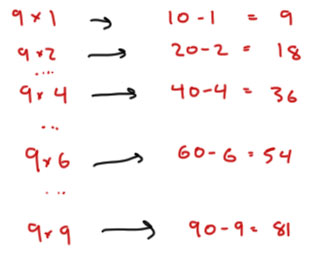 9 × 1 → 10 - 1 = 9
9 × 2 → 20 - 2 = 18
....
9 × 4 → 40 - 4 = 36
...
9 × 6 → 60 - 6 = 54
....
9 × 9 → 90 - 9 = 81